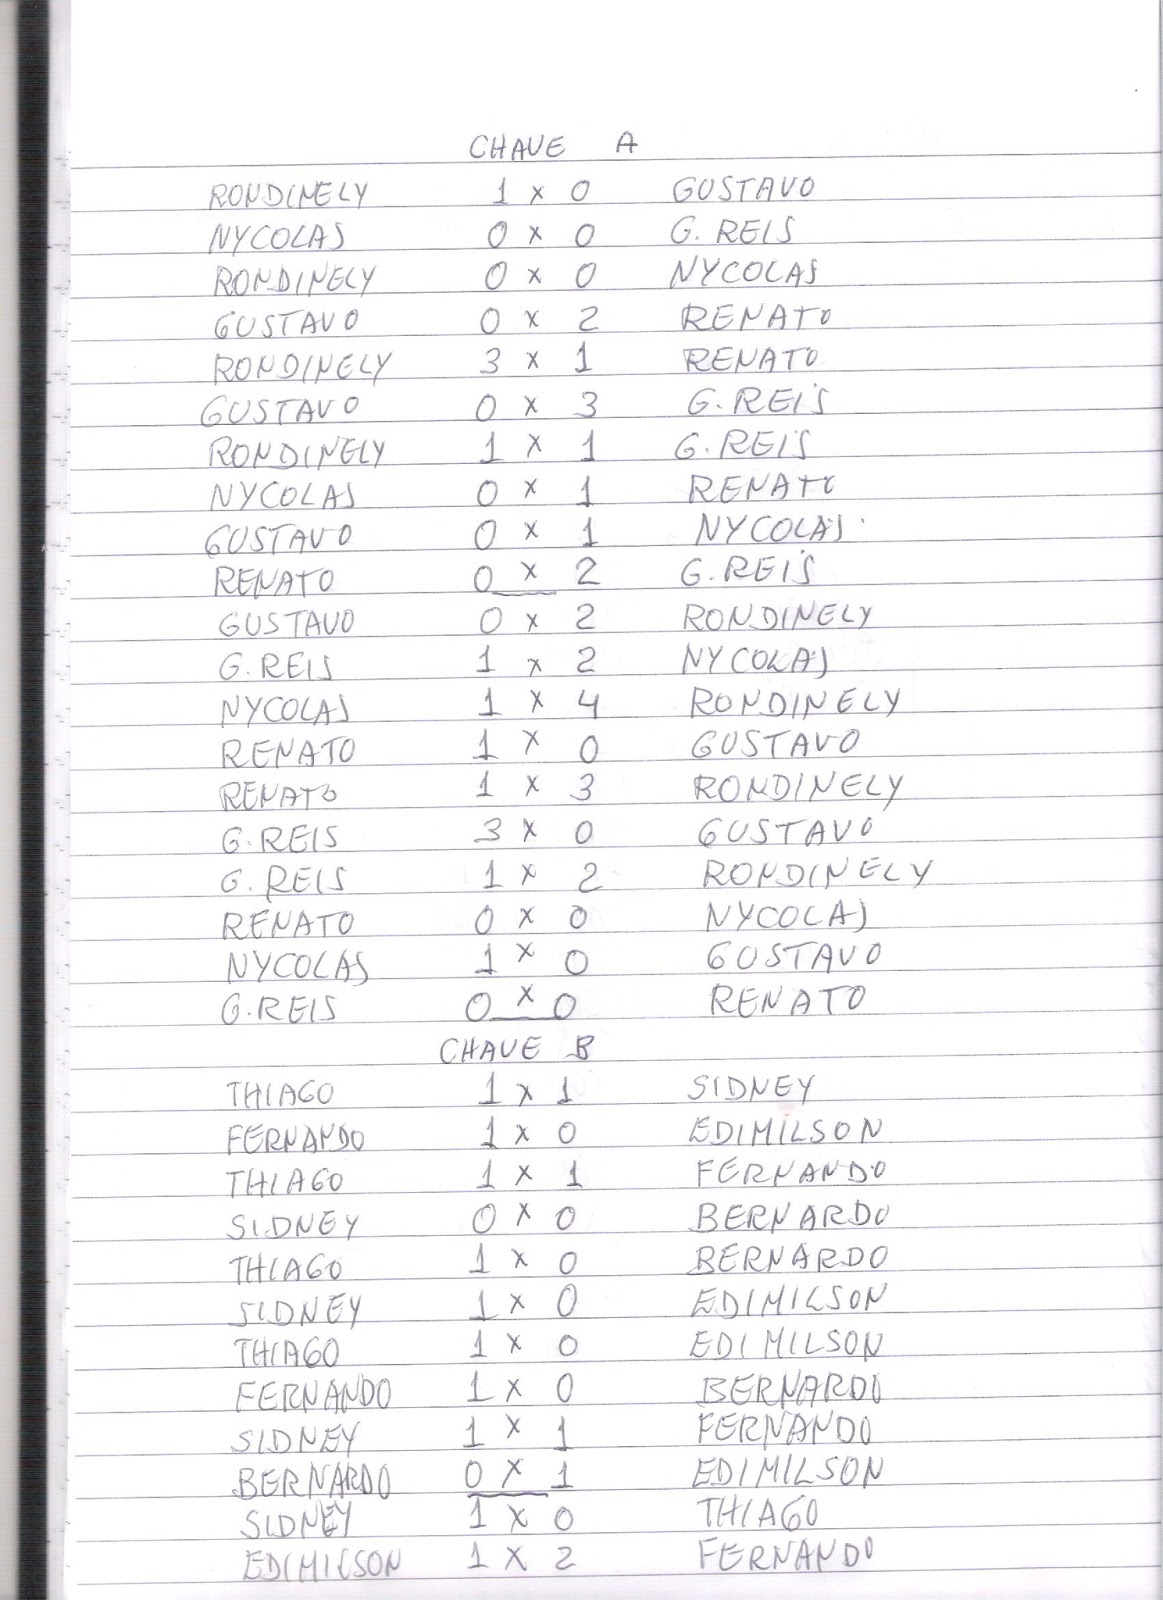 CHAVE A
RONDINELY 1 x 0 GUSTAVO
NYCOLAS 0 x 0 G. REIS
RONDINELY 0 x 0 NYCOLAS
GUSTAVO 0 x 2 RENATO
RONDINELY 3 x 1 RENATO
GUSTAVO 0 x 3 G. REIS
RONDINELY 1 x 1 G. REIS
NYCOLAS 0 x 1 RENATO
GUSTAVO 0 x 1 NYCOLAS
RENATO 0 x 2 G. REIS
GUSTAVO 0 x 2 RONDINELY
G. REIS 1 x 2 NYCOLAS
NYCOLAS 1 x 4 RONDINELY
RENATO 1 x 0 GUSTAVO
RENATO 1 x 3 RONDINELY
G. REIS 3 x 0 GUSTAVO
G. REIS 1 x 2 RONDINELY
RENATO 0 x 0 NYCOLAS
NYCOLAS 1 x 0 GUSTAVO
G. REIS 0 x 0 RENATO
CHAVE B
THIAGO 1 x 1 SIDNEY
FERNANDO 1 x 0 EDIMILSON
THIAGO 1 x 1 FERNANDO
SIDNEY 0 x 0 BERNARDO
THIAGO 1 x 0 BERNARDO
SIDNEY 1 x 0 EDIMILSON
THIAGO 1 x 0 EDIMILSON
FERNANDO 1 x 0 BERNARDO
SIDNEY 1 x 1 FERNANDO
BERNARDO 0 x 1 EDIMILSON
SIDNEY 1 x 0 THIAGO
EDIMILSON 1 x 2 FERNANDO